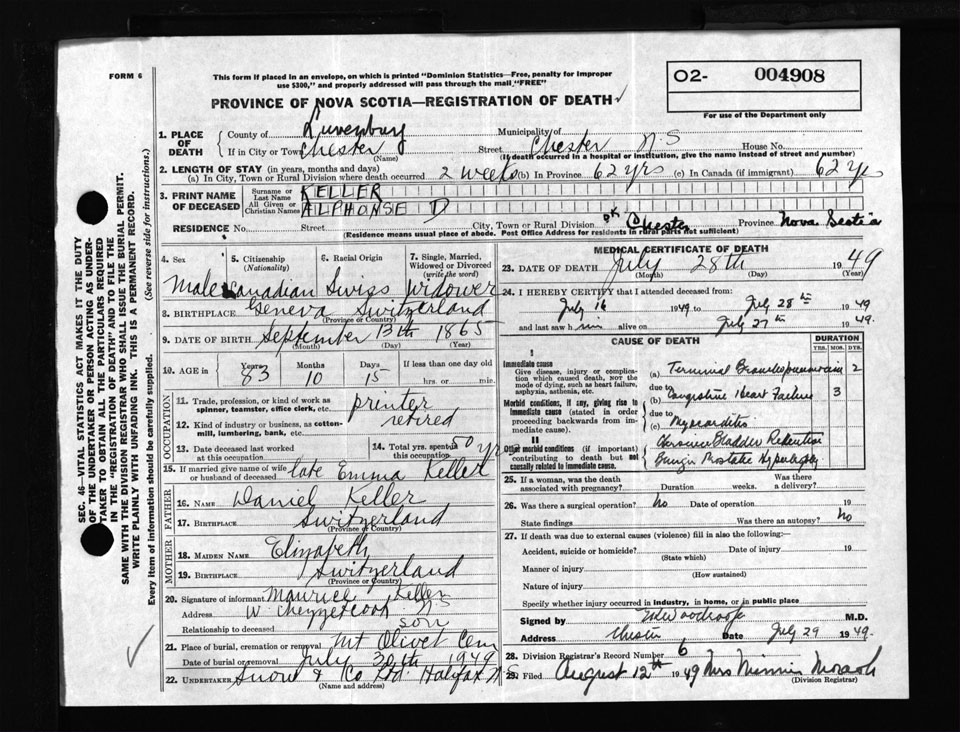 FORM 6
This form if placed in an envelope, on which is printed "Dominion Statistics—Free, penalty for improper
use $300," and properly addressed will pass through the mail "FREE"
O2- 004908
For use of the Department only
PROVINCE OF NOVA SCOTIA—REGISTRATION OF DEATH
1. PLACE OF DEATH
County of Lunenburg Municipality of Chester N.S
If in City or Town Chester (Name) Street House No.
(If death occurred in a hospital or institution, give the name instead of street and number)
2. LENGTH OF STAY (in years, months and days)
(a) In City, Town or Rural Division where death occurred 2 weeks (b) In Province 62 yrs (c) In Canada (if immigrant) 62 yrs
3. PRINT NAME OF DECEASED
Surname or Last Name KELLER
All Given or Christian Names ALPHONSE D
RESIDENCE No. Street City, Town or Rural Division Chester Province Nova Scotia
(Residence means usual place of abode. Post Office Address for residents in rural parts not sufficient)
4. Sex
Male
5. Citizenship (Nationality)
Canadian
6. Racial Origin
Swiss
7. Single, Married, Widowed or Divorced (write the word)
Widower
8. BIRTHPLACE Geneva Switzerland
(Province or Country)
9. DATE OF BIRTH September 13th 1865
(Month) (Day) (Year)
10. AGE in Years 83 Months 10 Days 15 If less than one day old hrs. or min.
OCCUPATION
11. Trade, profession, or kind of work as spinner, teamster, office clerk, etc. printer
12. Kind of industry or business, as cotton-mill, lumbering, bank, etc. retired
13. Date deceased last worked at this occupation
14. Total yrs. spent in this occupation 50 yrs
15. If married give name of wife or husband of deceased late Emma Keller
FATHER
16. NAME Daniel Keller
17. BIRTHPLACE Switzerland
(Province or Country)
MOTHER
18. MAIDEN NAME Elizabeth
19. BIRTHPLACE Switzerland
(Province or Country)
20. Signature of informant Maurice Keller
Address W Chezzetcook N.S
Relationship to deceased son
21. Place of burial, cremation or removal Mt Olivet Cem
Date of burial or removal July 30th 1949
22. UNDERTAKER Snow & Co Ltd. Halifax N.S
(Name and address)
MEDICAL CERTIFICATE OF DEATH
23. DATE OF DEATH July 28th 1949
(Month) (Day) (Year)
24. I HEREBY CERTIFY that I attended deceased from:
July 16 1949 to July 28th 1949
and last saw him alive on July 27th 1949.
CAUSE OF DEATH
DURATION
YRS. MOS. DYS.
I
Immediate cause
Give disease, injury or complication which caused death, not the mode of dying, such as heart failure, asphyxia, asthenia, etc.
(a) Terminal Bronchopneumonia 2
due to
Morbid conditions, if any, giving rise to immediate cause (stated in order proceeding backwards from immediate).
(b) Congestive Heart Failure 3
due to
(c) Myocarditis
II
Other morbid conditions (if important) contributing to death but not causally related to immediate cause.
Chronic Bladder Retention
Benign Prostatic Hypertrophy
25. If a woman, was the death associated with pregnancy? Duration weeks. Was there a delivery?
26. Was there a surgical operation? No Date of operation 19
State findings Was there an autopsy? No
27. If death was due to external causes (violence) fill in also the following:
Accident, suicide or homicide? Date of injury 19
(State which)
Manner of injury
(How sustained)
Nature of injury
Specify whether injury occurred in industry, in home, or in public place
Signed by M.D.
Address Chester Date July 29 1949.
28. Division Registrar's Record Number 6
29. Filed August 12th 1949 Mrs Minnie
(Division Registrar)
SEC. 46—VITAL STATISTICS ACT MAKES IT THE DUTY
OF THE UNDERTAKER OR PERSON ACTING AS UNDER-
TAKER TO OBTAIN ALL THE PARTICULARS REQUIRED
IN THE "REGISTRATION OF DEATH" AND TO FILE THE
SAME WITH THE DIVISION REGISTRAR WHO SHALL ISSUE THE BURIAL PERMIT.
WRITE PLAINLY WITH UNFADING INK. THIS IS A PERMANENT RECORD.
Every item of information should be carefully supplied. (See reverse side for instructions.)